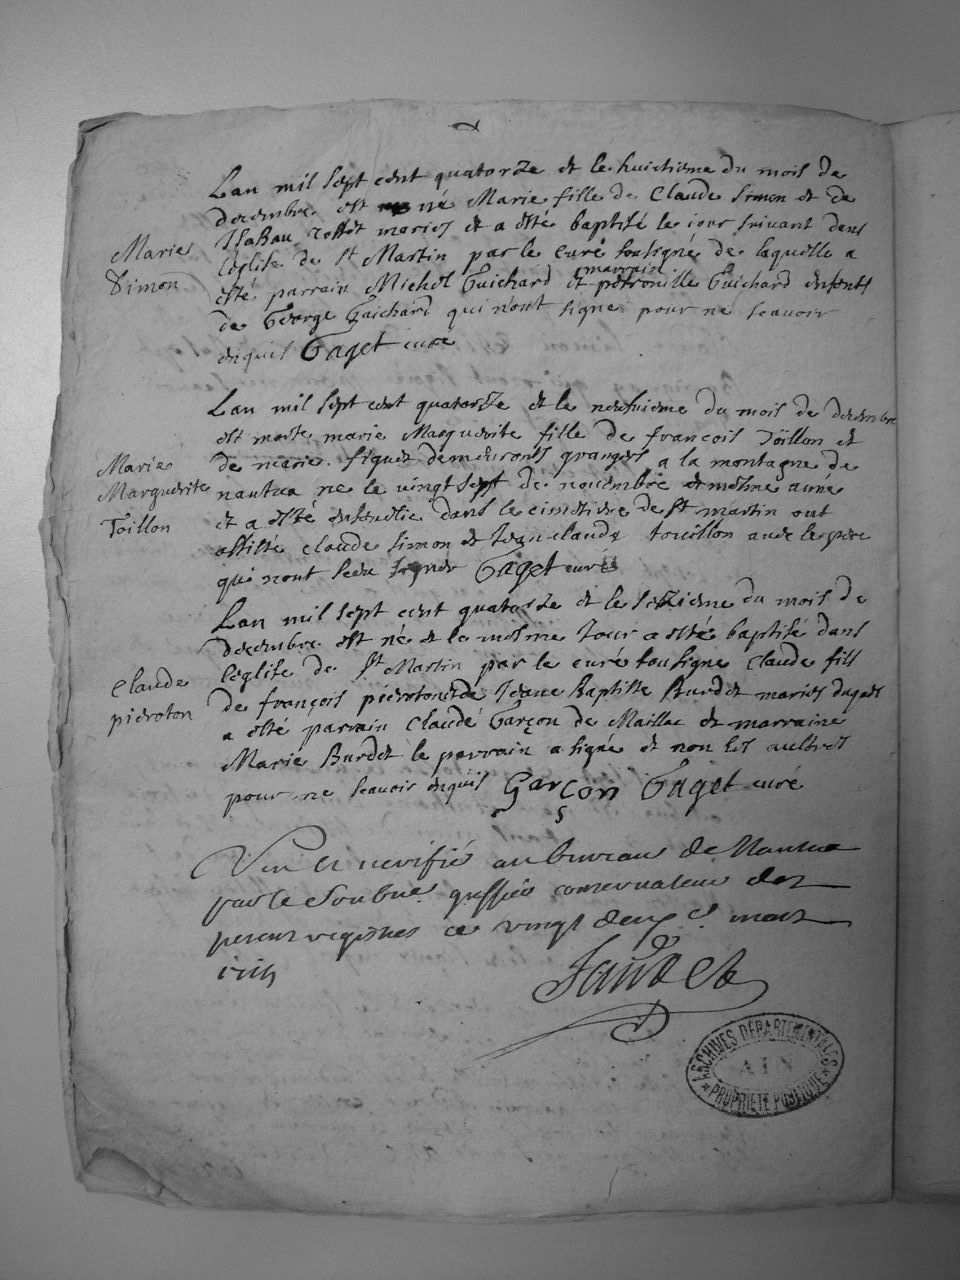 Lan mil sept cent quatorze et le huictieme du mois de
decembre est né Marie fille de Claude Simon et de
Marie
Simon
mariés et a esté baptisé le jour suivant dans
leglise de st Martin par le curé soussigné de laquelle a
esté parrain Michel Guichard et marraine petronille Guichard enfants
de George Guichard qui n'ont signé pour ne scavoir
enquis Gaget curé
Lan mil sept cent quatorze et le neufvieme du mois de decembre
est morte marie Marguerite fille de françois Toillon et
Marie
Marguerite
Toillon
de marie demeurants grangers a la montagne de
nantua ne le vingt sept de novembre et mesme année
et a esté ensevelie dans le cimetiere de st martin ont
assisté Claude Simon et Jean claude touillon avec le pere
qui nont sceu signer Gaget curé
Lan mil sept cent quatorze et le seizieme du mois de
decembre est né et le mesme Jour a esté baptisé dans
Claude
pieroton
leglise de st Martin par le curé soussigné Claude fils
de françois pieroton et de Jeane Baptiste Burdet mariés
a esté parrain Claude Garçon de Maillac et marraine
Marie Burdet le parrain a signé et non les aultres
pour ne scavoir enquis Garçon Gaget curé
Veu et verifié au bureau de Nantua
par le Soubne greffier conservateur des
registres ce vingt deux mars
1715
ARCHIVES DÉPARTEMENTALES
AIN
PROPRIÉTÉ PUBLIQUE